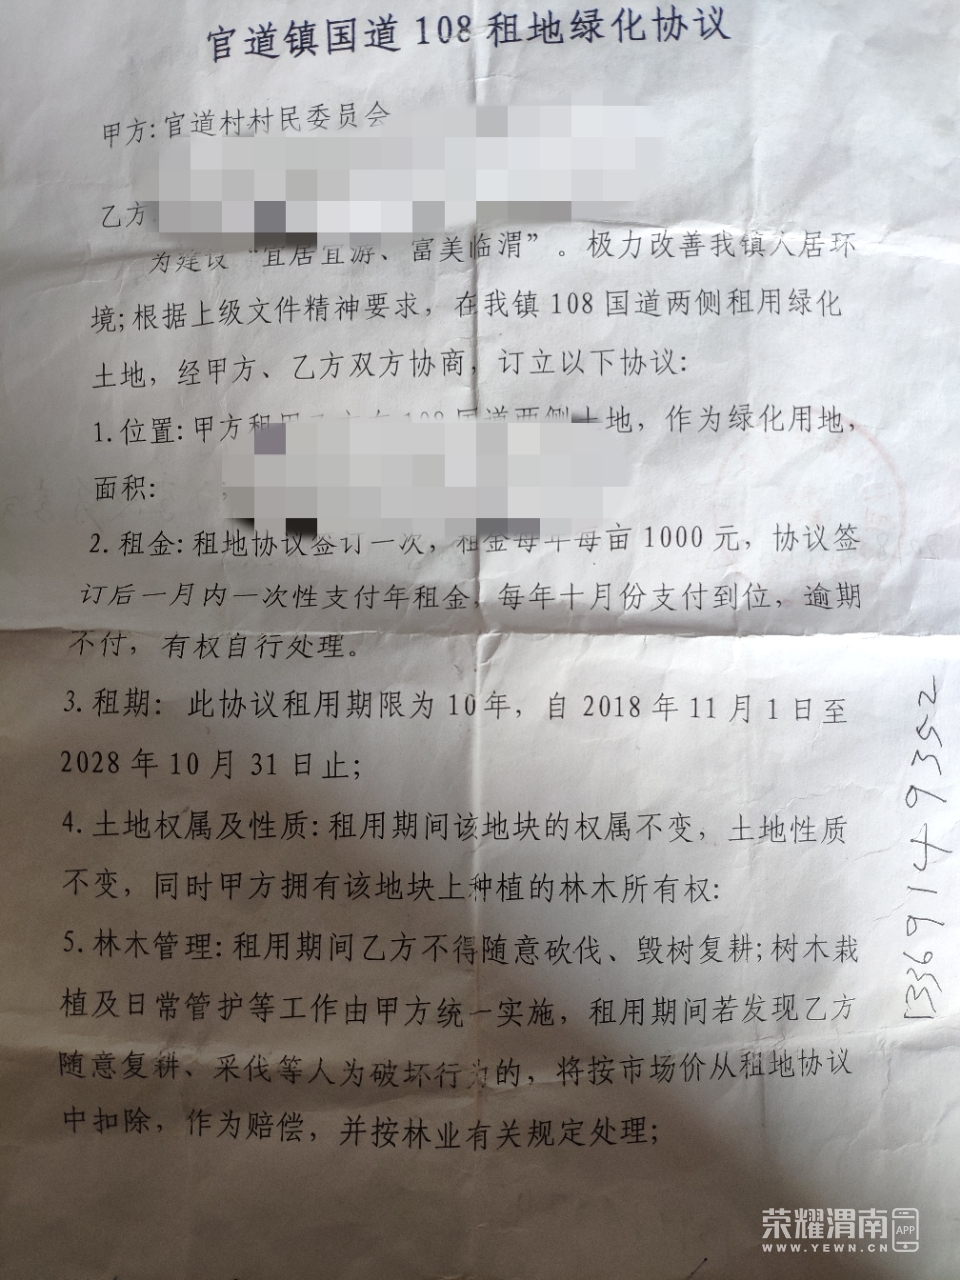 官道镇国道108租地绿化协议
甲方:官道村村民委员会
乙方
为建设“宜居宜游、富美临渭”。极力改善我镇人居环
境;根据上级文件精神要求，在我镇108国道两侧租用绿化
土地，经甲方、乙方双方协商，订立以下协议:
1.位置:甲方租用乙方在108国道两侧土地，作为绿化用地，
面积:
2.租金:租地协议签订一次，租金每年每亩1000元，协议签
订后一月内一次性支付年租金，每年十月份支付到位，逾期
不付，有权自行处理。
3.租期: 此协议租用期限为10年，自2018年11月1日至
2028年10月31日止;
4.土地权属及性质:租用期间该地块的权属不变，土地性质
不变，同时甲方拥有该地块上种植的林木所有权:
5.林木管理:租用期间乙方不得随意砍伐、毁树复耕;树木栽
植及日常管护等工作由甲方统一实施，租用期间若发现乙方
随意复耕、采伐等人为破坏行为的，将按市场价从租地协议
中扣除，作为赔偿，并按林业有关规定处理;
13369149352
荣耀渭南APP
WWW.YEWN.CN